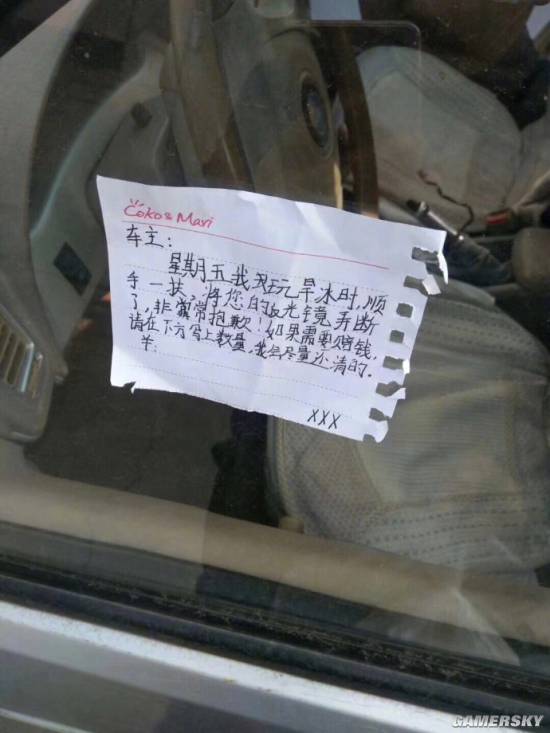 Coko & Mari
车主：
星期五我在玩旱冰时，顺
手一扶，将您的反光镜弄断
了，非常常抱歉！如果需要赔钱，
请在下方写上数量，我会尽量还清的．
羊：
XXX
GAMERSKY